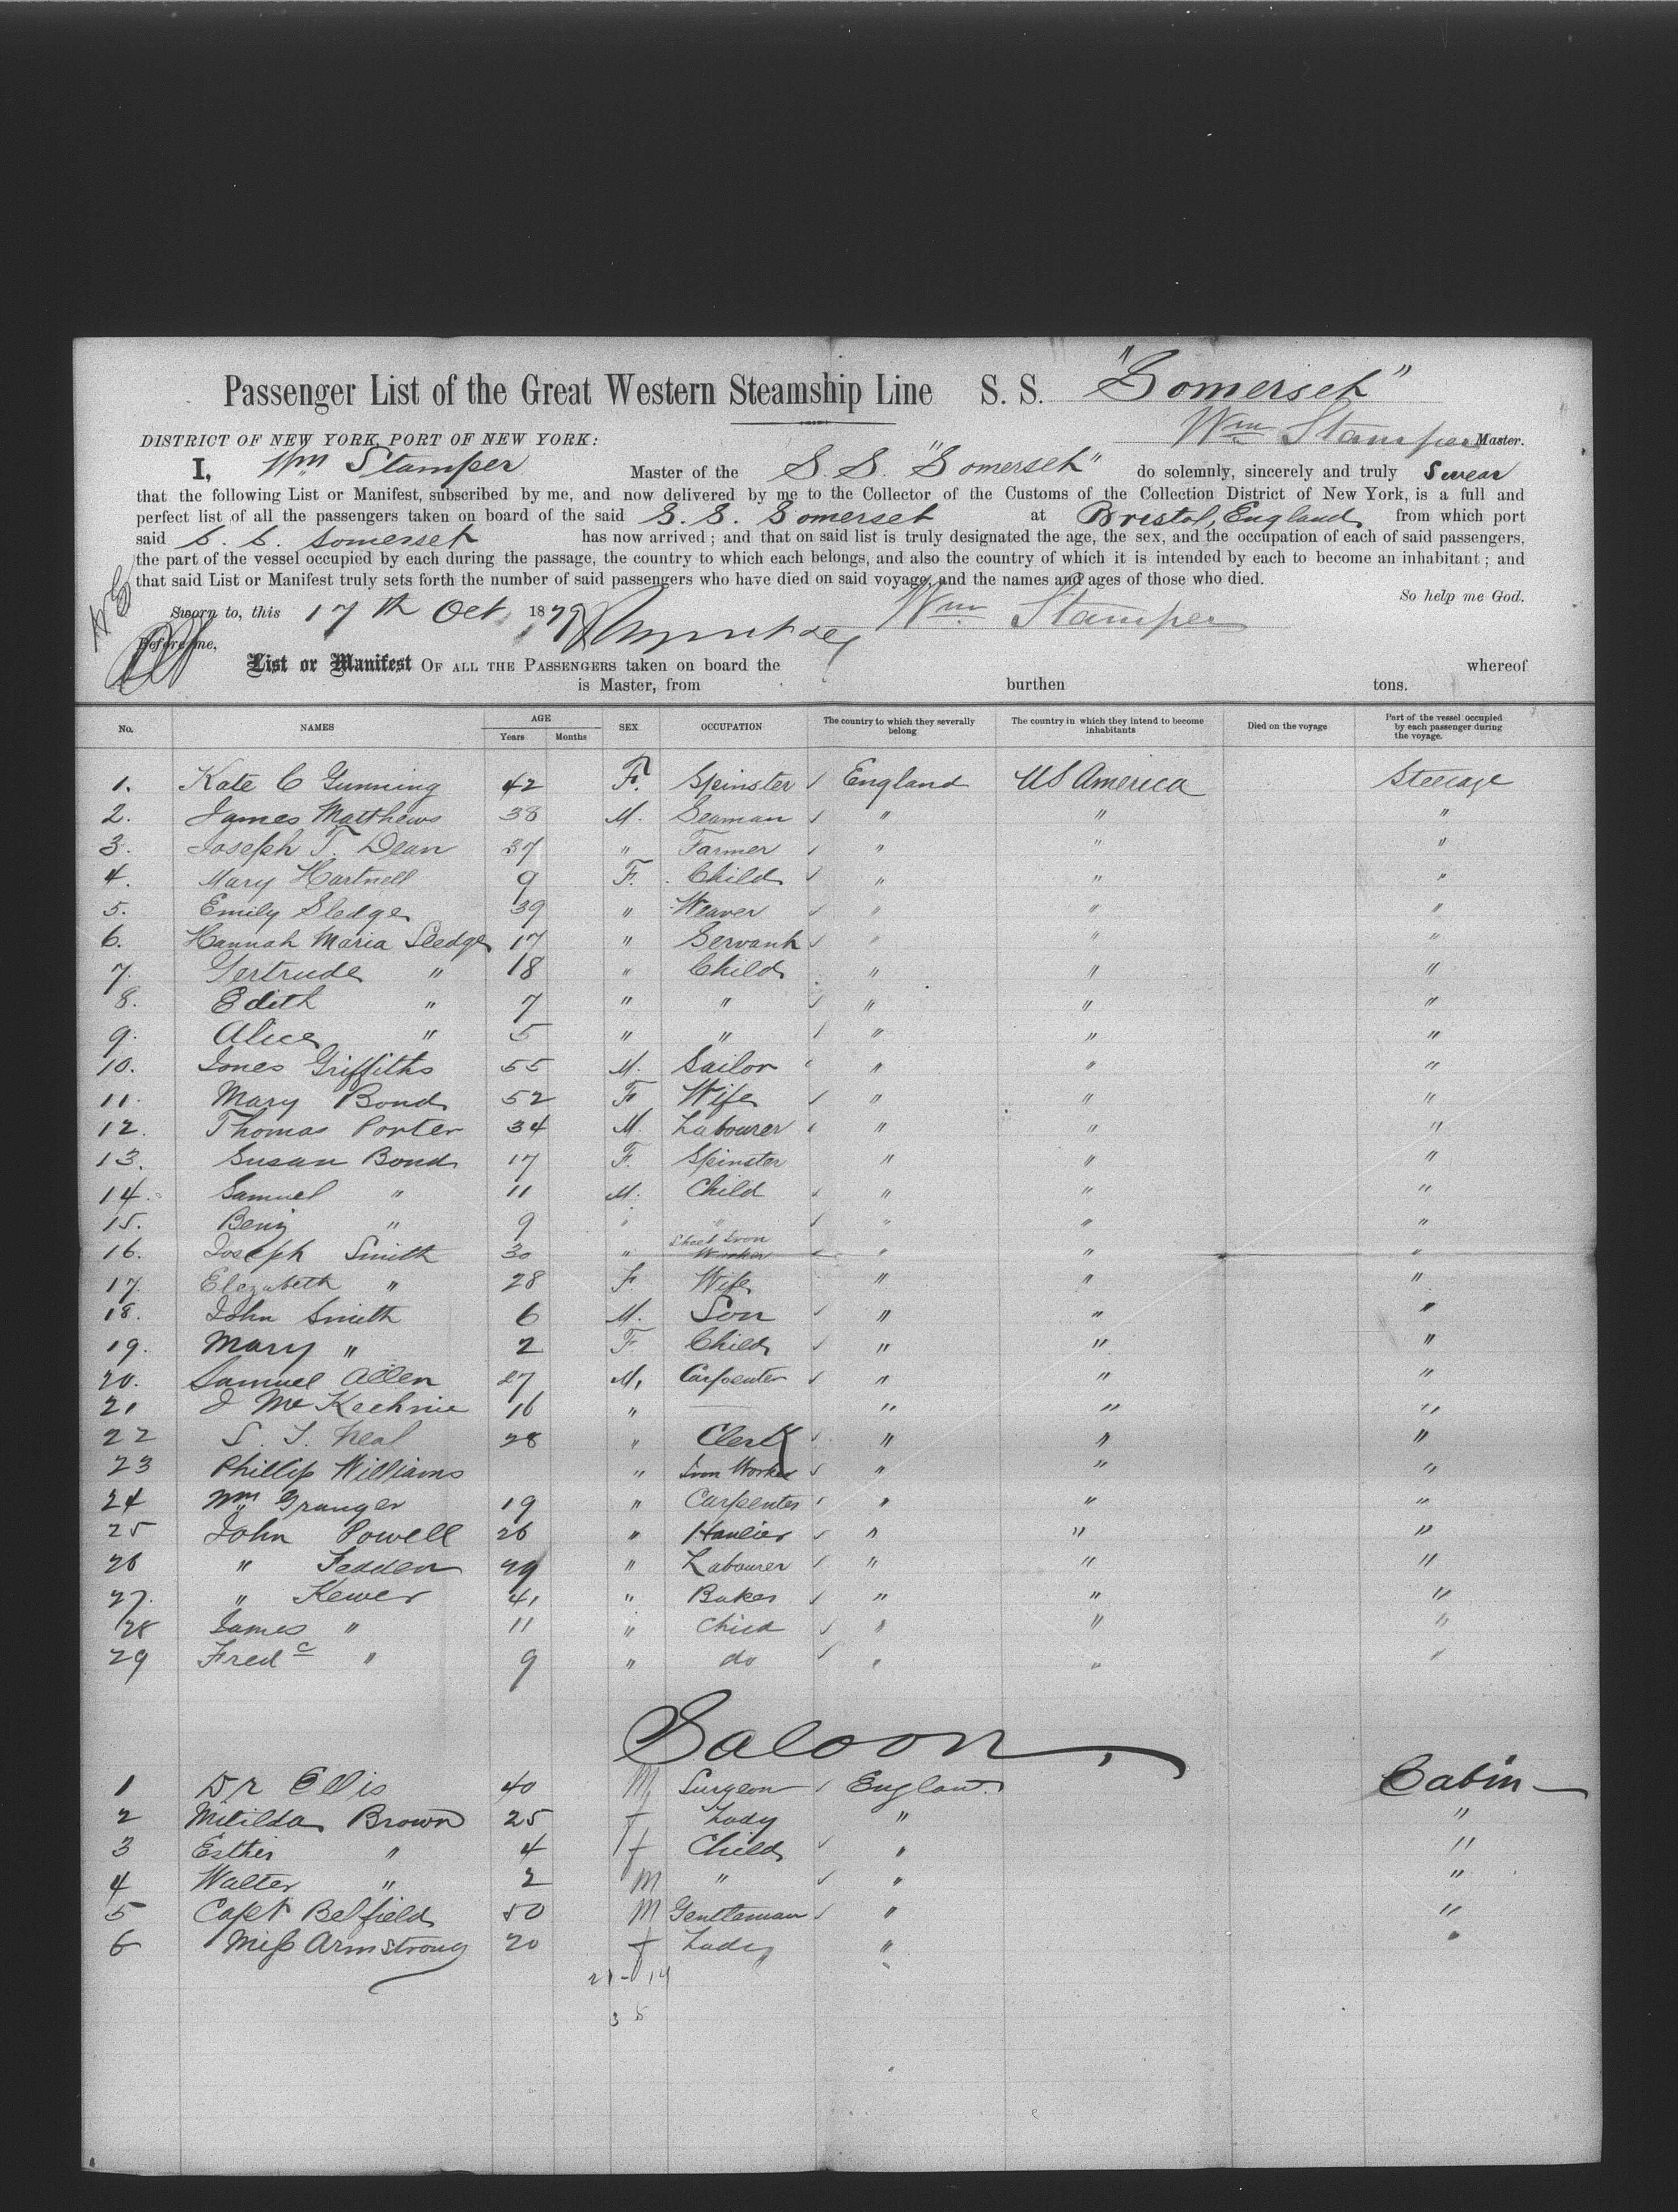 Passenger List of the Great Western Steamship Line S. S. "Somerset"
Wm Stamper Master.
DISTRICT OF NEW YORK, PORT OF NEW YORK:
I, Wm Stamper Master of the S. S. "Somerset" do solemnly, sincerely and truly Swear
that the following List or Manifest, subscribed by me, and now delivered by me to the Collector of the Customs of the Collection District of New York, is a full and
perfect list of all the passengers taken on board of the said S. S. Somerset at Bristol, England from which port
said S. S. Somerset has now arrived; and that on said list is truly designated the age, the sex, and the occupation of each of said passengers,
the part of the vessel occupied by each during the passage, the country to which each belongs, and also the country of which it is intended by each to become an inhabitant; and
that said List or Manifest truly sets forth the number of said passengers who have died on said voyage, and the names and ages of those who died.
So help me God.
Sworn to, this 17th Oct 1879 Wm Stamper
Before me,
List or Manifest OF ALL THE PASSENGERS taken on board the whereof
is Master, from burthen tons.
No. NAMES AGE Years Months SEX OCCUPATION The country to which they severally belong The country in which they intend to become inhabitants Died on the voyage Part of the vessel occupied by each passenger during the voyage.
1. Kate C Gunning 42 F. Spinster England US America Steerage
2. James Matthews 38 M. Seaman " " "
3. Joseph T. Dean 37 " Farmer " " "
4. Mary Hartnell 9 F. Child " " "
5. Emily Sledge 39 " Weaver " " "
6. Hannah Maria Sledge 17 " Servant " " "
7. Gertrude " 18 " Child " " "
8. Edith " 7 " " " " "
9. Alice " 5 " " " " "
10. Jones Griffiths 55 M. Sailor " " "
11. Mary Bond 52 F Wife " " "
12. Thomas Porter 34 M. Labourer " " "
13. Susan Bond 17 F. Spinster " " "
14. Samuel " 11 M. Child " " "
15. Benj " 9 " " " " "
16. Joseph Smith 30 " Sheet Iron Worker " " "
17. Elezabeth " 28 F. Wife " " "
18. John Smith 6 M. Son " " "
19. Mary " 2 F. Child " " "
20. Samuel Allen 27 M. Carpenter " " "
21 J McKechnie 16 " " " "
22 S. T. Neal 28 " Clerk " " "
23 Phillip Williams " Iron Worker " " "
24 Wm Granger 19 " Carpenter " " "
25 John Powell 26 " Haulier " " "
26 " Fedden 29 " Labourer " " "
27. " Kewer 41 " Baker " " "
28 James " 11 " Child " " "
29 Fredc " 9 " do " " "
Saloon
1 Dr Ellis 40 M Surgeon England Cabin
2 Matilda Brown 25 f Lady " "
3 Esther " 4 f Child " "
4 Walter " 2 M " " "
5 Capt Belfield 50 M Gentleman " "
6 Miss Armstrong 20 f Lady " "
21 - 14
35